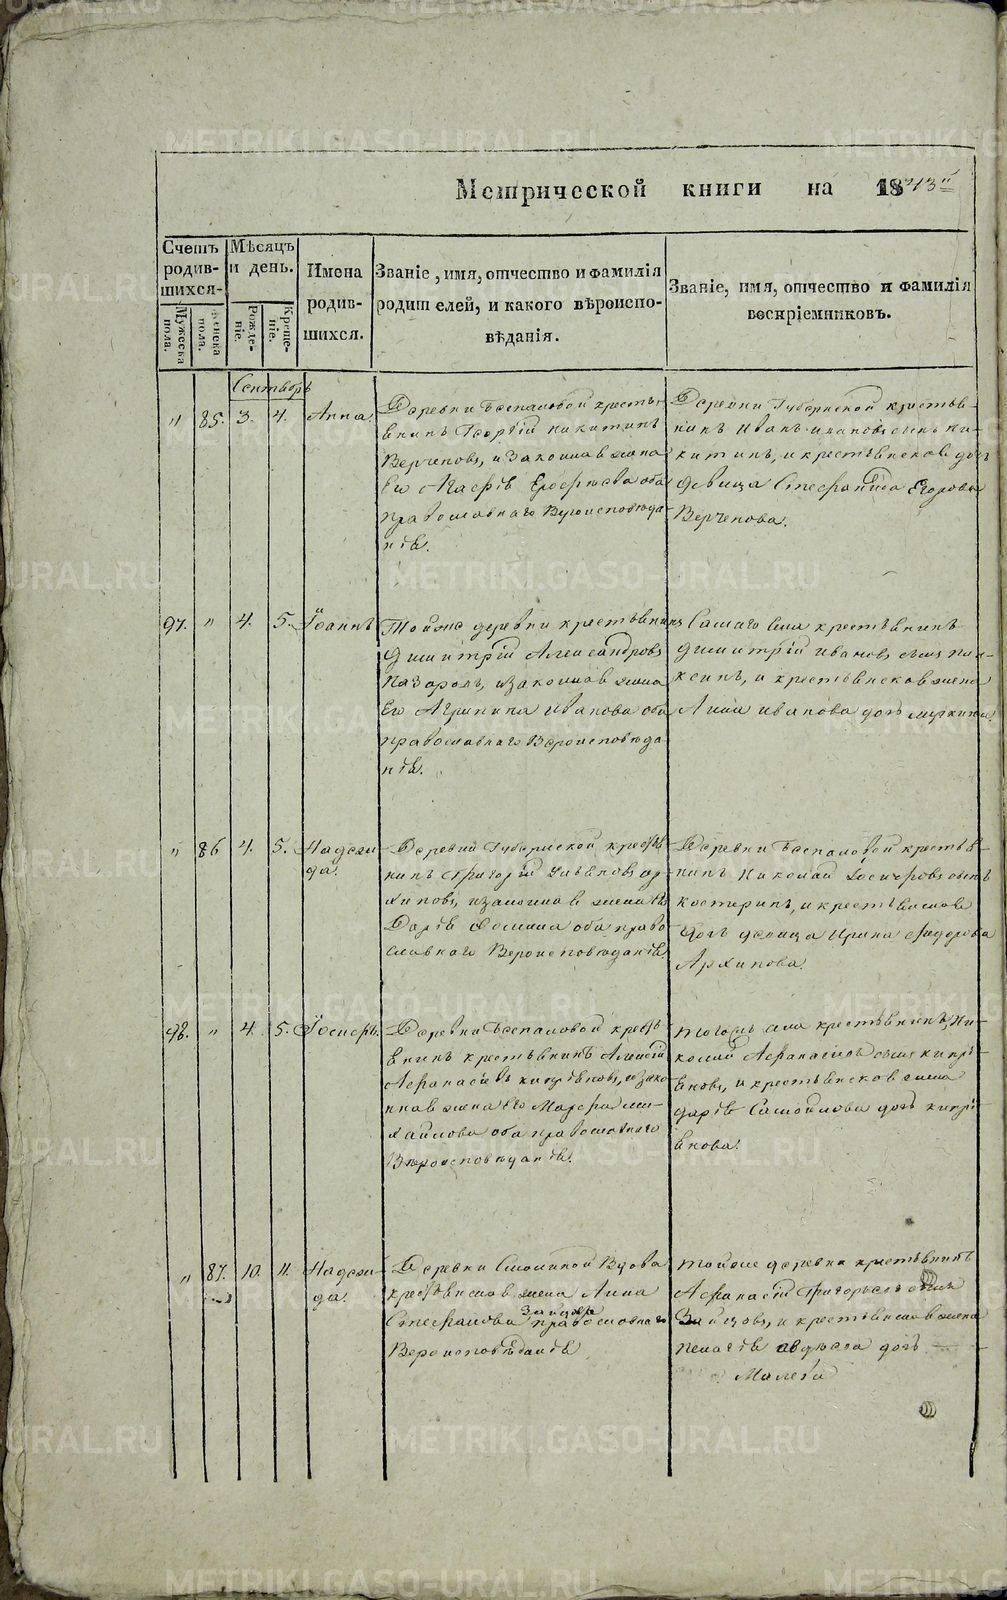 Метрической книги на 1843й
Счетъ родив-шихся.
Мужеска пола.
Женска пола.
Мѣсяцъ и день.
Рожде-ніе.
Креще-ніе.
Имена родив-шихся.
Званіе, имя, отчество и фамилія родителей, и какого вѣроиспо-вѣданія.
Званіе, имя, отчество и фамилія воспріемниковъ.
Сентябрь
" 85. 3. 4. Анна
Деревни Беспаловой кресть-
янинъ Георгій Никитинъ
и законная жена
Его Ерофѣева оба
православнаго Вероисповѣда-
нія.
Деревни Губернской крестья-
нинъ Иванъ Ивановъ сынъ Ни-
китинъ, и крестьянская дочь
Девица Стефанида Егорова
97. " 4. 5. Іоаннъ
Тойже деревни крестьянинъ
Димитрій Александровъ
и законная жена
Его Агрипина Иванова оба
православнаго Вероисповѣда-
нія.
Самаго села крестьянинъ
Димитрій Ивановъ сынъ
и крестьянская жена
Анна Иванова дочь
" 86 4. 5. Надежда
Деревни Губернской крестья
нинъ Григорій Ар-
хиповъ, и законная жена его
Дарія Фомина оба право
славнаго Вероисповѣданія
Деревни Беспаловой крестья-
нинъ Николай сынъ
Костеринъ, и крестьянская
дочь девица Ирина Сидорова
Архипова.
98. " 4. 5. Іосифъ.
Деревни Беспаловой кресть
янинъ крестьянинъ Алексій
Афанасіевъ Кипріяновъ, и зако-
нная жена Его Марфа Ми-
хайлова оба православнаго
Вѣроисповѣданія.
Тогожъ села крестьянинъ Ни-
колай Афанасіевъ сынъ Кипрі-
яновъ, и крестьянская жена
Дарія Самойлова дочь Кипрі
янова.
" 87. 10. 11. Надежда.
Деревни Смолиной Вдова
крестьянская жена Анна
Стефанова Зайцова православнаго
Вероисповѣданія
Тойже деревни крестьянинъ
Афанасій Григорьевъ сынъ
Зайцовъ, и крестьянская жена
Пелагія дочь
METRIKI.GASO-URAL.RU